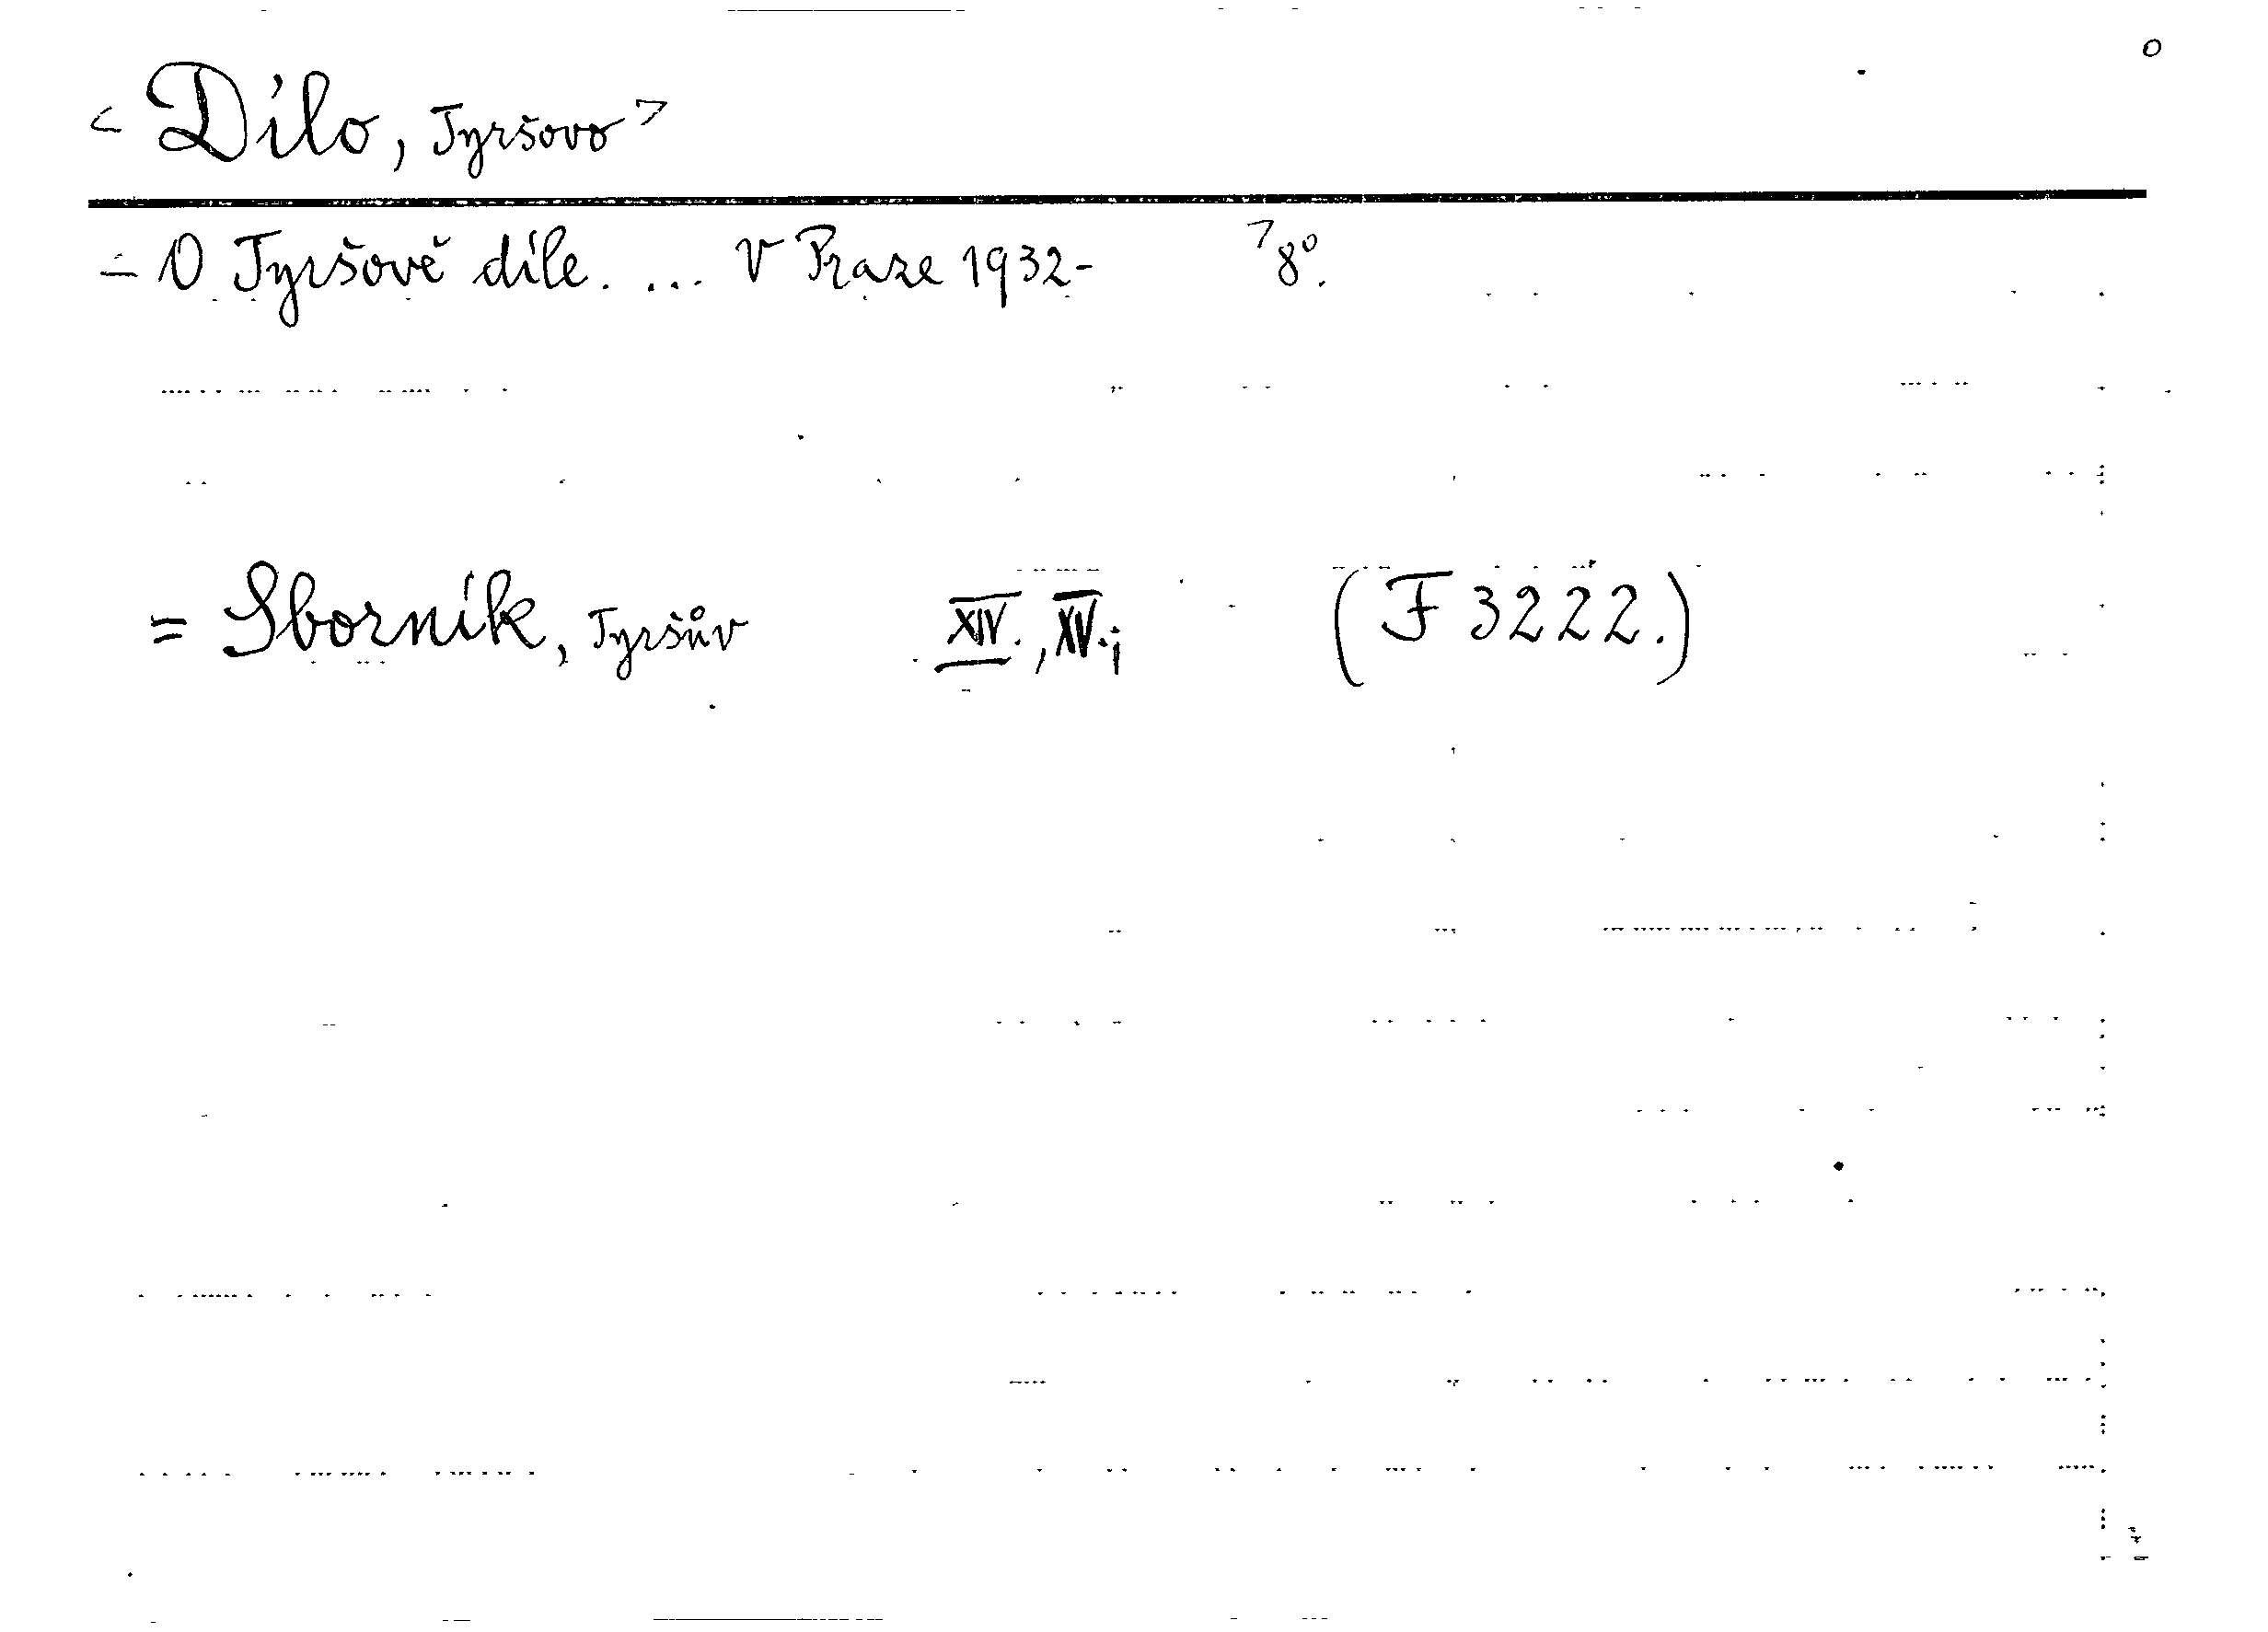 < Dílo, Tyršovo >
= O Tyršově díle. ... V Praze 1932- 8°.
= Sborník, Tyršův XIV., XV.; (F 3222.)